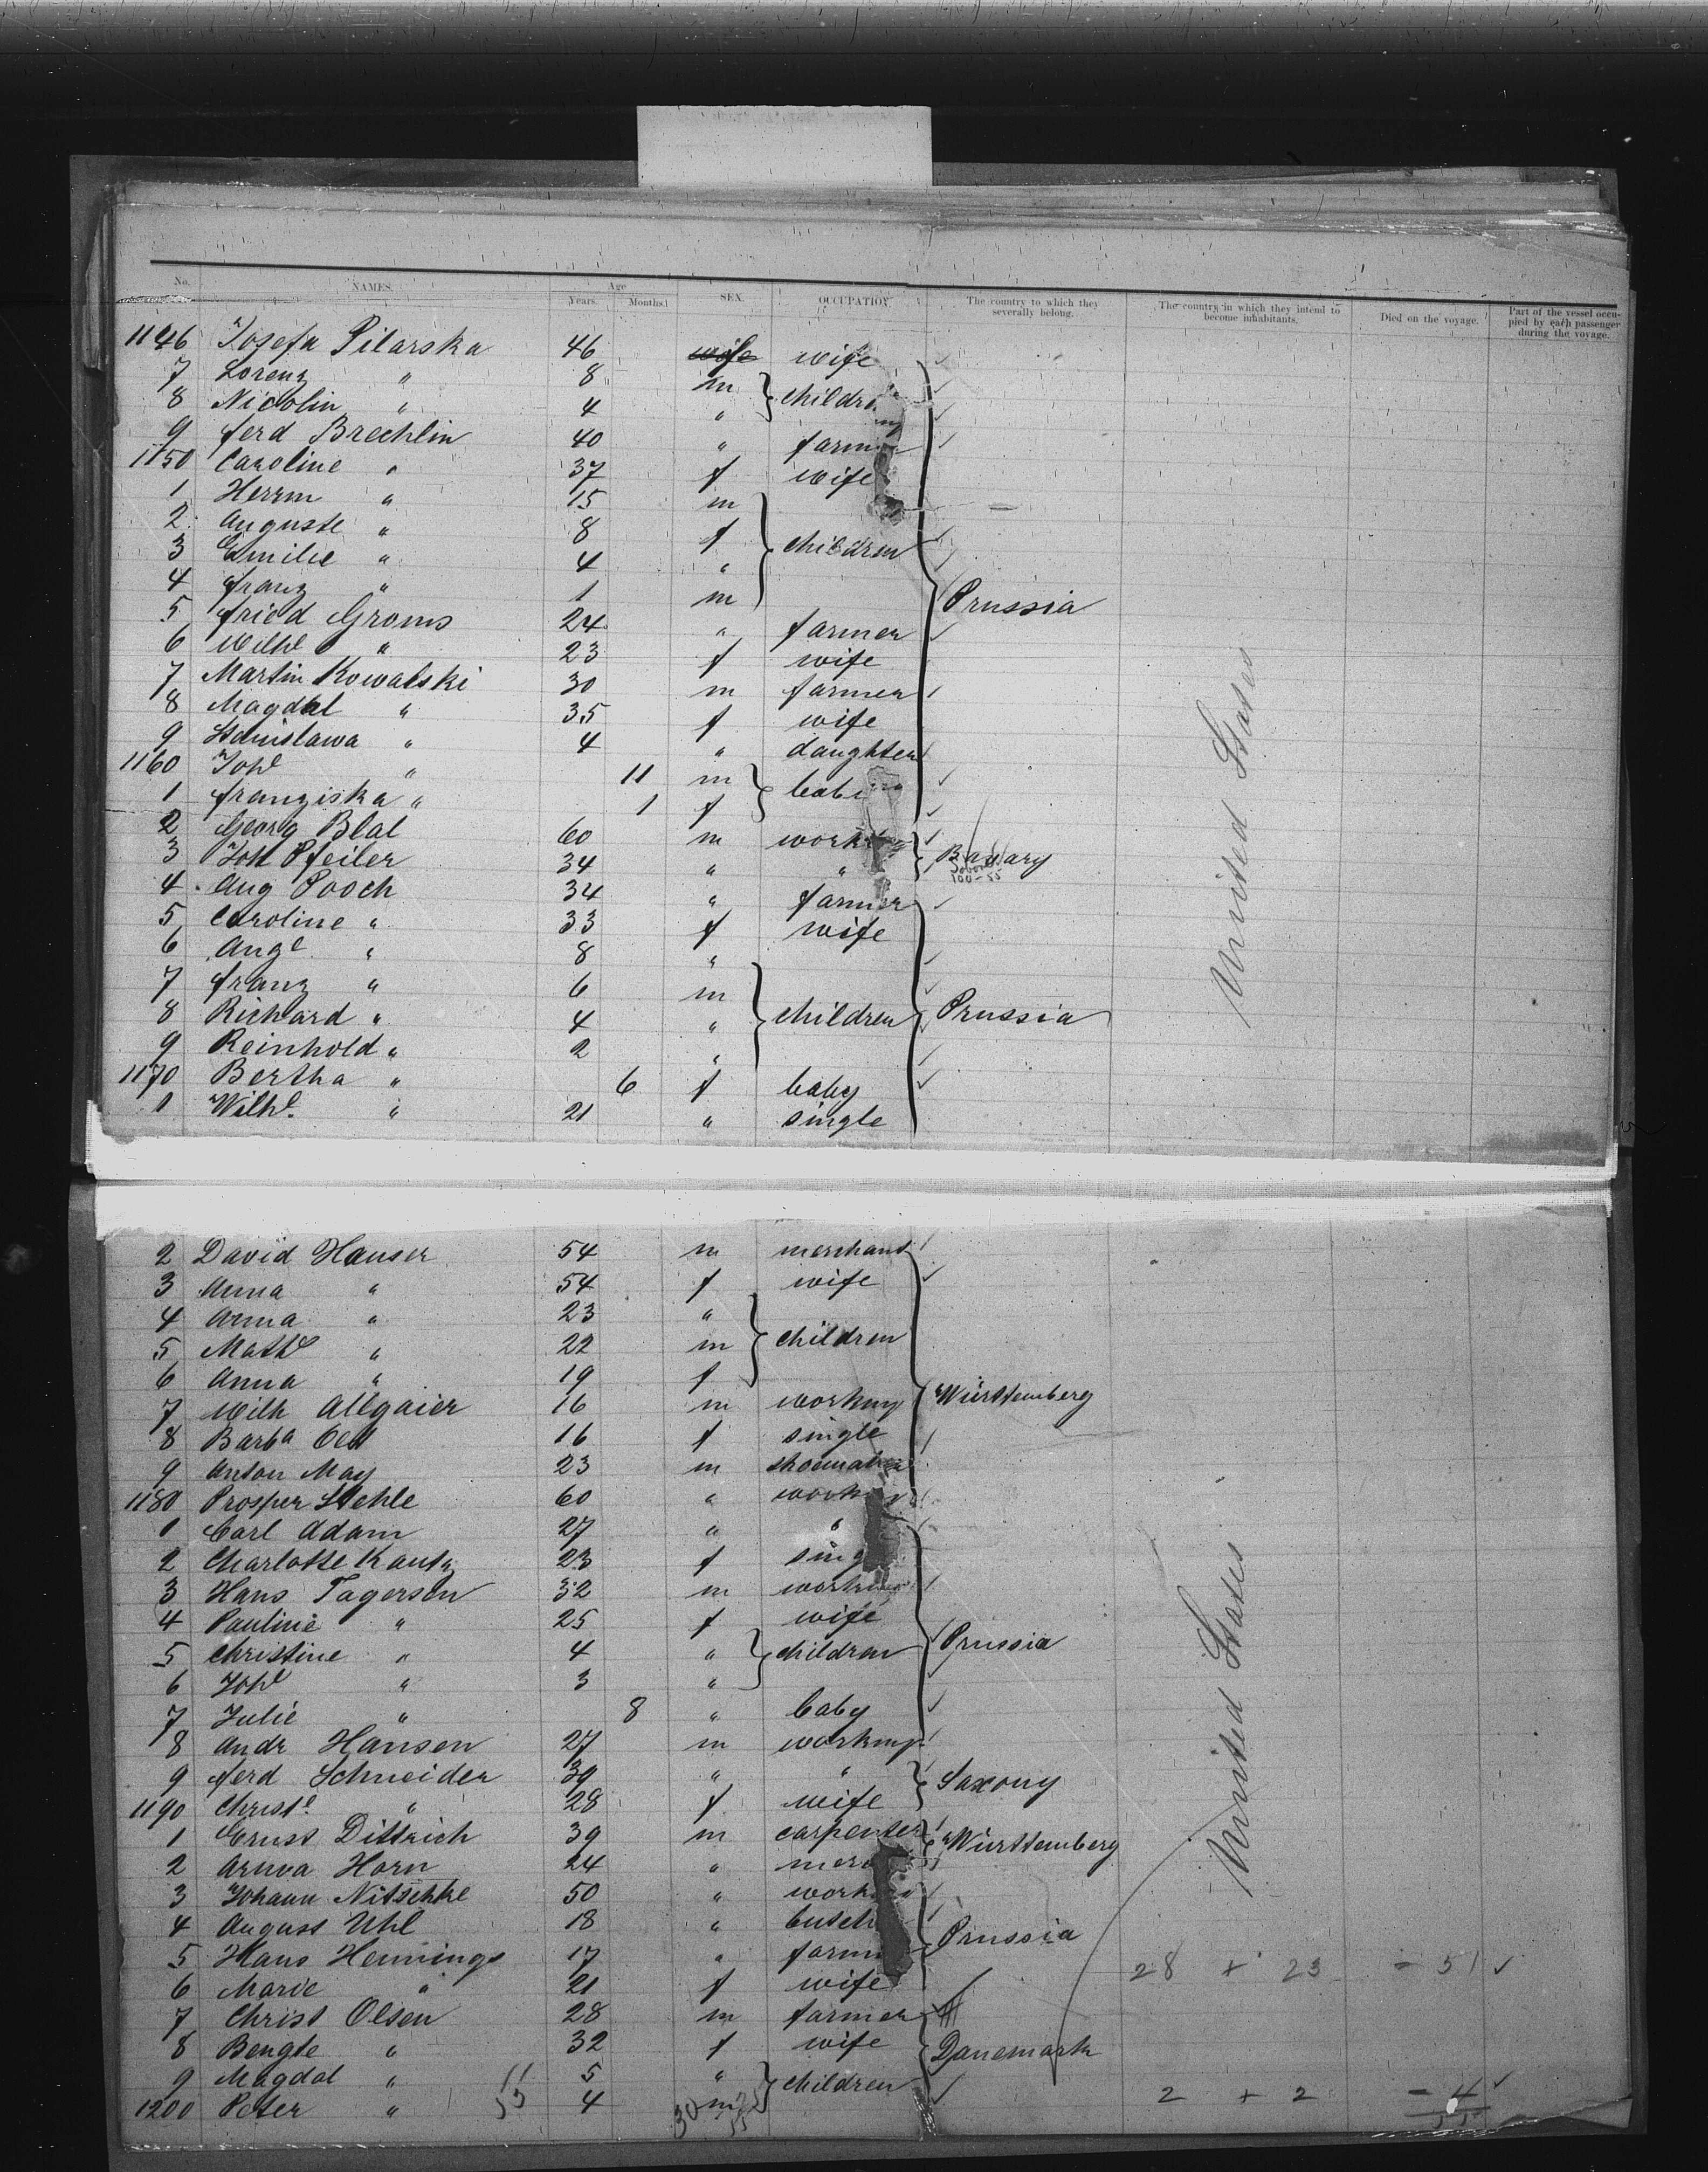 No. NAMES. Age Years. Months. SEX. OCCUPATION. The country to which they severally belong. The country in which they intend to become inhabitants. Died on the voyage. Part of the vessel occupied by each passenger during the voyage.
1146 Josefa Pilarska 46 wife wife
7 Lorenz " 8 m children
8 Nicolin " 4 "
9 Ferd Brechlin 40 " farmer
1150 Caroline " 37 f wife
1 Herrm " 15 m
2 Auguste " 8 f children
3 Emilie " 4 "
4 Franz " 1 m Prussia
5 Fried Groms 24 " farmer
6 Wilhe " 23 f wife
7 Martin Kowalski 30 m farmer
8 Magdal " 35 f wife
9 Stanislawa " 4 " daughter
1160 Joh " 11 m
1 Franziska " 1 f
2 Georg Blal 60 m
3 Joh Pfeiler 34 " " Bavary
4 Aug Pooch 34 " farmer
5 Caroline " 33 f wife
6 Auge " 8 "
7 Franz " 6 m
8 Richard " 4 " children Prussia
9 Reinhold " 2 "
1170 Bertha " 6 f baby
1 Wilhe " 21 " single
United States
2 David Hauser 54 m merchant
3 Anna " 54 f wife
4 Anna " 23 "
5 Mathe " 22 m children
6 Anna " 19 f
7 Wilh Allgaier 16 m workmg Württemberg
8 Barba 16 f single
9 Anton May 23 m
1180 Prosper Stehle 60 "
1 Carl Adam 27 " "
2 Charlotte Kautz 23 f
3 Hans Tagersen 32 m
4 Pauline " 25 f wife
5 Christine " 4 " children Prussia
6 Johe " 3 "
7 Julie " 8 " baby
8 Andr Hansen 27 m workmg
9 Ferd Schneider 39 " " Saxony
1190 Christe " 28 f wife
1 Ernst Dittrich 39 m carpenter Württemberg
2 Horn 24 "
3 Johann Nitschke 50 "
4 August Uhl 18 " Prussia
5 Hans Hennings 17 "
6 Marie " 21 f wife
7 Christ Olsen 28 m farmer
8 Bengte " 32 f wife Danemark
9 Magdal " 5 " children
1200 Peter " 4 m
United States
28 + 23 = 51
2 + 2 = 4
55